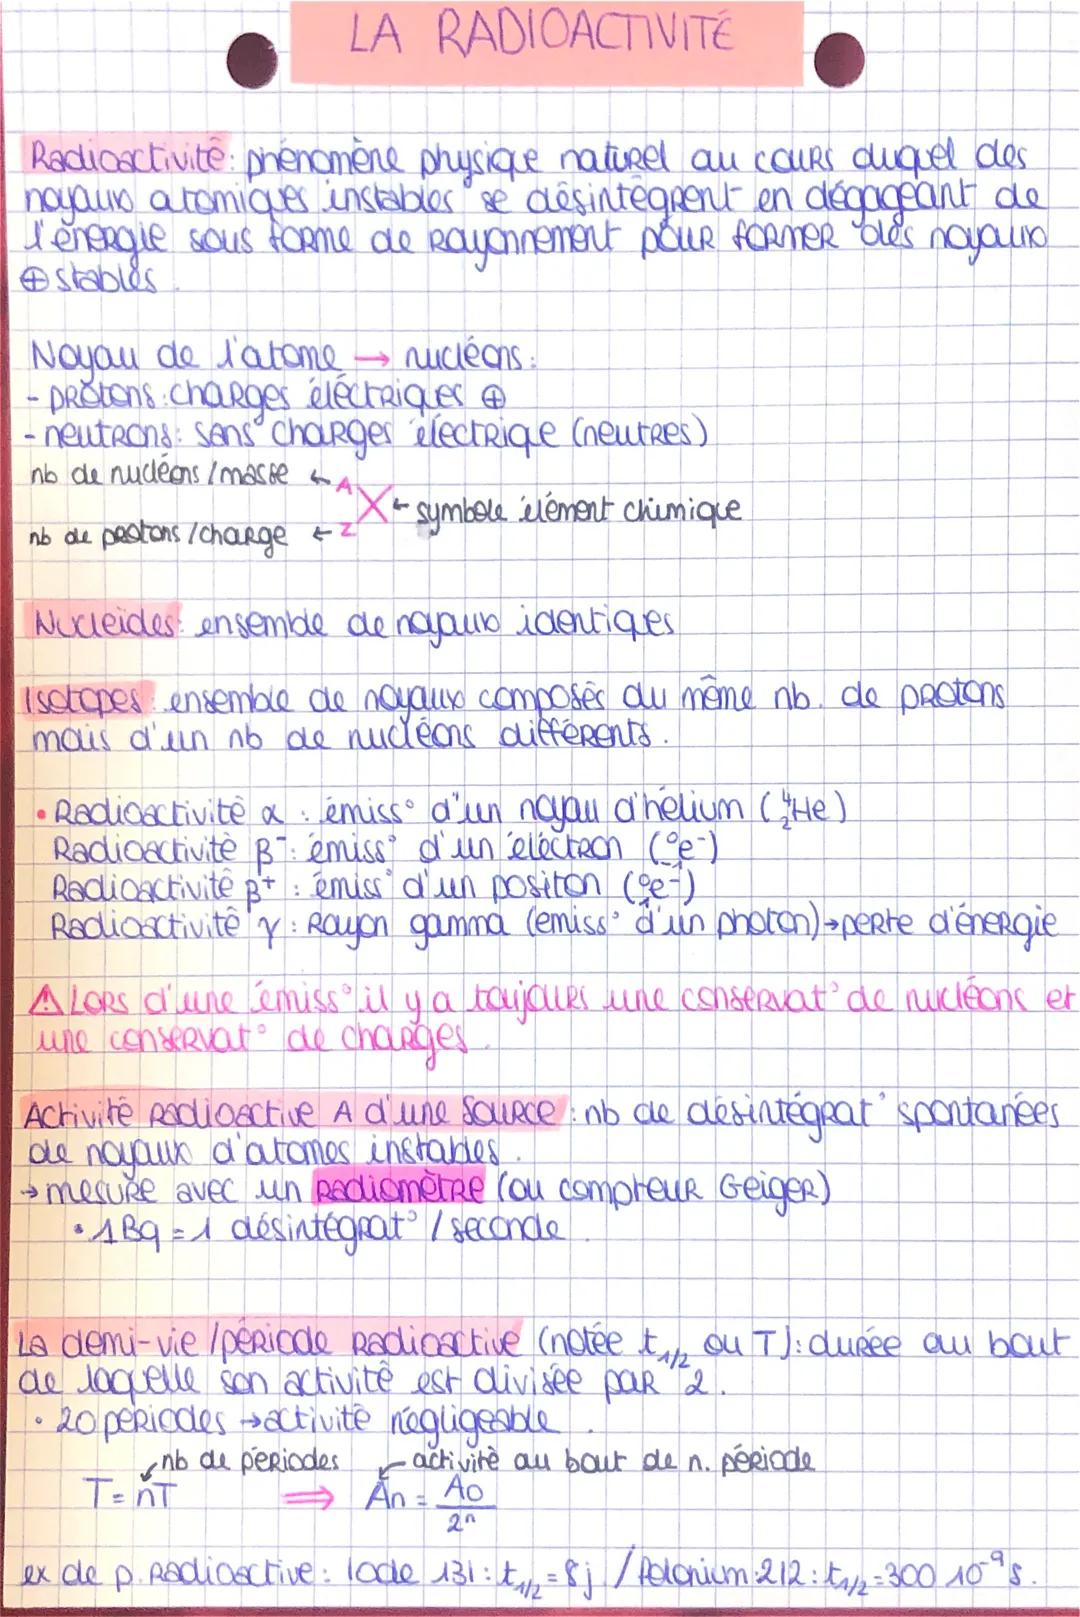 LA RADIOACTIVITÉ
Radioactivité : phénomène physique naturel au cours duquel des
noyaux atomiques instables se désintègrent en dégageant de
l'énergie sous forme de rayonnement pour former des noyaux
⊕ stables.
Noyau de l'atome → nucléons :
- protons : charges éléctriques ⊕
- neutrons : sans charges éléctrique (neutres)
nb de nucléons / masse ← A
X ← symbole élément chimique
nb de protons / charge ← Z
Nucleides : ensemble de noyaux identiques
Isotopes : ensemble de noyaux composés du même nb. de protons
mais d'un nb de nucléons différents.
• Radioactivité α : émiss° d'un noyau d'hélium (⁴₂He)
Radioactivité β⁻ : émiss° d'un éléctron (⁰₋₁e⁻)
Radioactivité β⁺ : émiss° d'un positon (⁰₁e⁺)
Radioactivité γ : Rayon gamma (émiss° d'un photon) → perte d'énergie
⚠ Lors d'une émiss° il y a toujours une conservat° de nucléons et
une conservat° de charges.
Activité radioactive A d'une source : nb de désintégrat° spontanées
de noyaux d'atomes instables.
→ mesure avec un radiomètre (ou compteur Geiger)
• 1Bq = 1 désintégrat° / seconde.
La demi-vie / période radioactive (notée t1/2 ou T) : durée au bout
de laquelle son activité est divisée par 2.
• 20 périodes → activité négligeable.
nb de périodes activité au bout de n. période
T = nT ⇒ An = A0 / 2ⁿ
ex de p. radioactive : Iode 131 : t1/2 = 8j / Polonium 212 : t1/2 = 300 10⁻⁹ s.